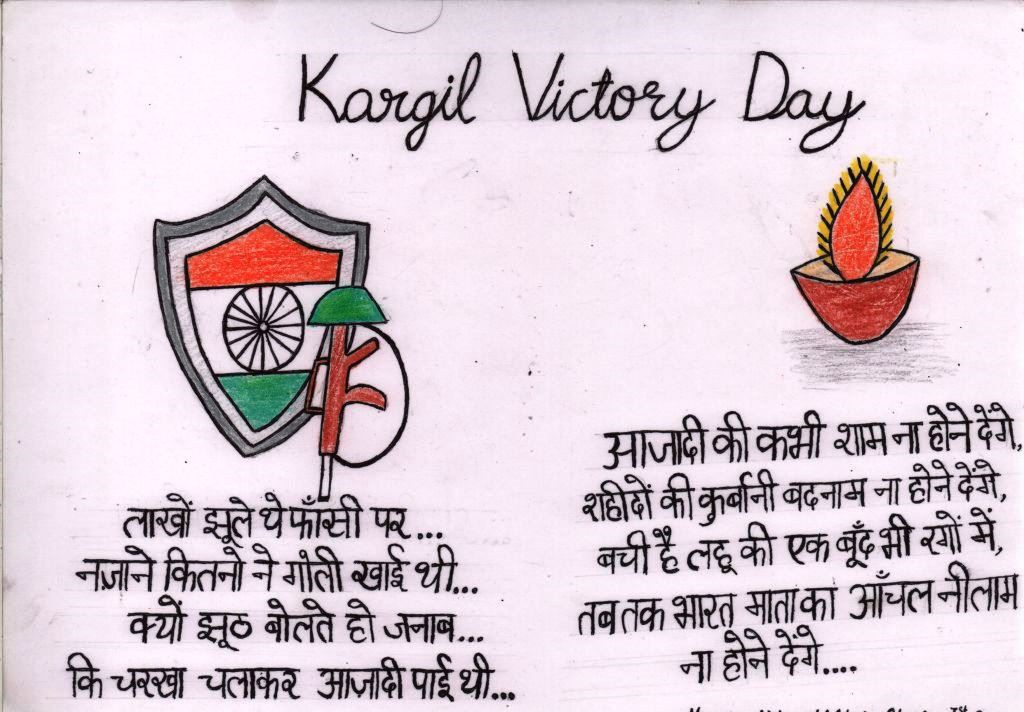 Kargil Victory Day
लाखों झूले थे फाँसी पर...
नजाने कितनो ने गोली खाई थी...
क्यों झूठ बोलते हो जनाब...
कि चरखा चलाकर आजादी पाई थी...
आजादी की कभी शाम ना होने देंगे,
शहीदों की कुर्बानी बदनाम ना होने देंगे,
बची है लहू की एक बूँद भी रगों में,
तब तक भारत माता का आँचल नीलाम
ना होने देंगे....